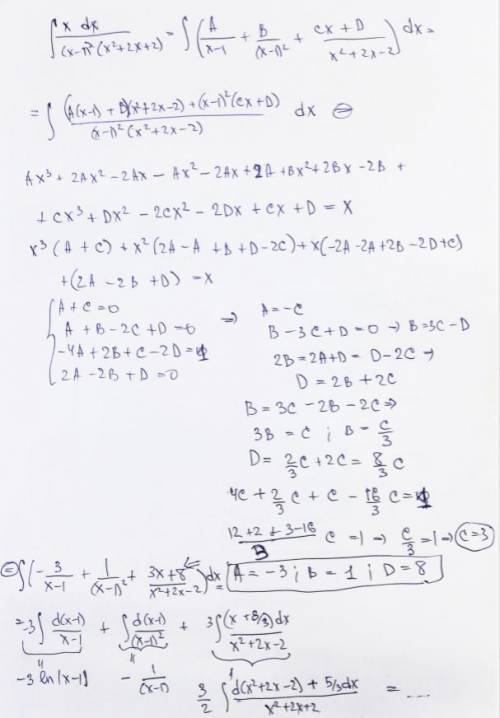 ∫ x dx / ((x-1)²(x²+2x+2)) = ∫ (A/(x-1) + B/(x-1)² + (Cx+D)/(x²+2x-2)) dx =
= ∫ ((A(x-1) + B)(x²+2x-2) + (x-1)²(Cx+D)) / ((x-1)²(x²+2x-2)) dx ⊖
Ax³ + 2Ax² - 2Ax - Ax² - 2Ax + 2A + Bx² + 2Bx - 2B +
+ Cx³ + Dx² - 2Cx² - 2Dx + Cx + D = x
x³(A + C) + x²(2A - A + B + D - 2C) + x(-2A - 2A + 2B - 2D + C)
+ (2A - 2B + D) = x
{ A + C = 0 ⇒ A = -C
A + B - 2C + D = 0 B - 3C + D = 0 → B = 3C - D
-4A + 2B + C - 2D = 1 2B = 2A + D = D - 2C →
2A - 2B + D = 0 D = 2B + 2C
B = 3C - 2B - 2C ⇒
3B = C ; B = C/3
D = 2/3 C + 2C = 8/3 C
4C + 2/3 C + C - 16/3 C = 1
(12 + 2 + 3 - 16)/3 C = 1 → C/3 = 1 → C = 3
⊖ ∫ (-3/(x-1) + 1/(x-1)² + (3x+8)/(x²+2x-2)) dx = A = -3 ; B = 1 ; D = 8
= -3 ∫ d(x-1)/(x-1) + ∫ d(x-1)/(x-1)² + 3 ∫ (x + 8/3) dx / (x²+2x-2)
-3 ln|x-1| - 1/(x-1) 3/2 ∫ (d(x²+2x-2) + 5/3 dx) / (x²+2x+2) = ....